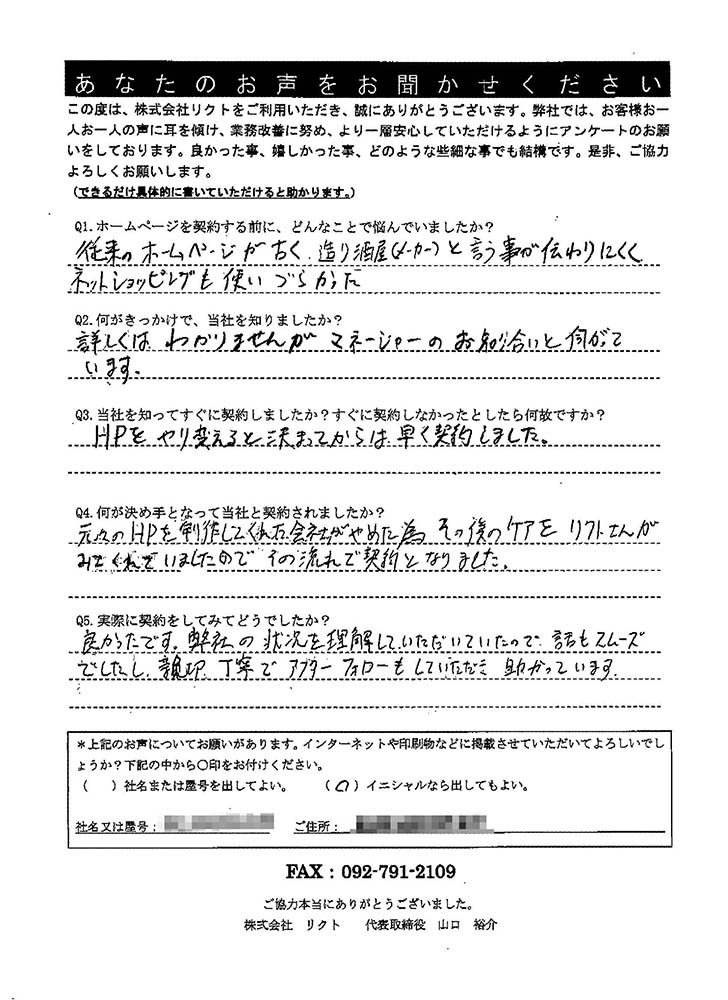 あなたのお声をお聞かせください
この度は、株式会社リクトをご利用いただき、誠にありがとうございます。弊社では、お客様お一
人お一人の声に耳を傾け、業務改善に努め、より一層安心していただけるようにアンケートのお願
いをしております。良かった事、嬉しかった事、どのような些細な事でも結構です。是非、ご協力
よろしくお願いします。
（できるだけ具体的に書いていただけると助かります。）
Q1.ホームページを契約する前に、どんなことで悩んでいましたか？
従来のホームページが古く、造り酒屋(メーカー)と言う事が伝わりにくく
ネットショッピングも使いづらかった
Q2.何がきっかけで、当社を知りましたか？
詳しくはわかりませんがマネージャーのお知り合いと伺がて
います。
Q3.当社を知ってすぐに契約しましたか？すぐに契約しなかったとしたら何故ですか？
HPをやり変えると決まってからは早く契約しました。
Q4.何が決め手となって当社と契約されましたか？
元々のHPを制作してくれた会社がやめた為、その後のケアをリクトさんが
みてくれていましたので その流れで契約となりました。
Q5.実際に契約をしてみてどうでしたか？
良かったです。弊社の状況を理解していただいていたので、話もスムーズ
でしたし、親切、丁寧でアフターフォローもしていただき助かっています。
＊上記のお声についてお願いがあります。インターネットや印刷物などに掲載させていただいてよろしいでし
ょうか？下記の中から〇印をお付けください。
（　）社名または屋号を出してよい。　（〇）イニシャルなら出してもよい。
社名又は屋号：　ご住所：
FAX：092-791-2109
ご協力本当にありがとうございました。
株式会社　リクト　代表取締役　山口　裕介